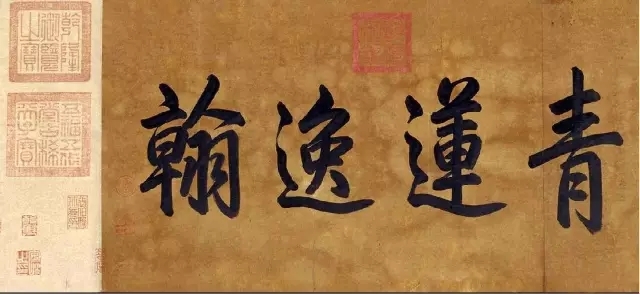 青蓮逸翰
乾隆御覽之寶